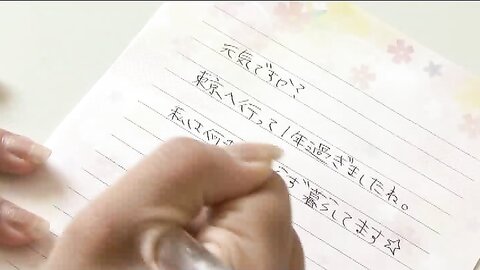 元気ですか?
東京へ行って1年過ぎましたね。
私は何 らず暮らしてます☆